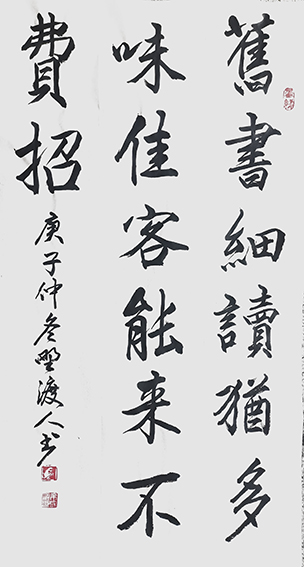 舊書細讀猶多
味佳客能來不
費招
庚子仲冬野渡人书